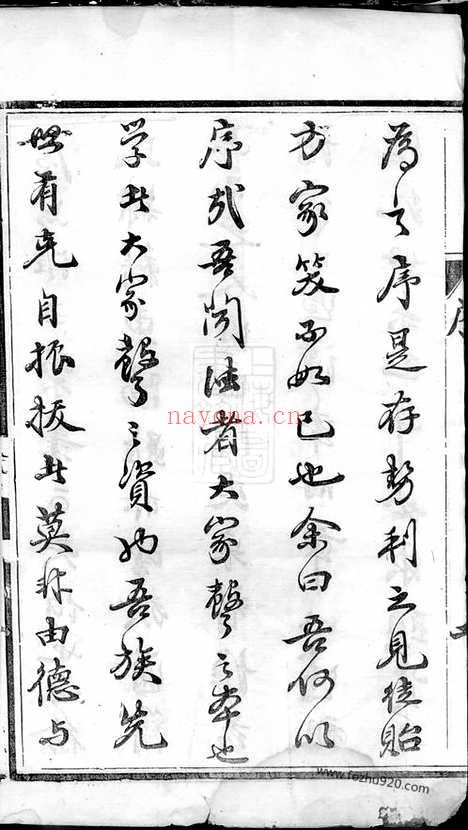 為之序是存勢利之見徒貽
方家笑不如已也余曰吾何以
序哉吾聞德者大家聲之本也
學者大家聲之資也吾族先
世有克自振拔者莫非由德与
序
nayona.cn
www.fezhu920.com